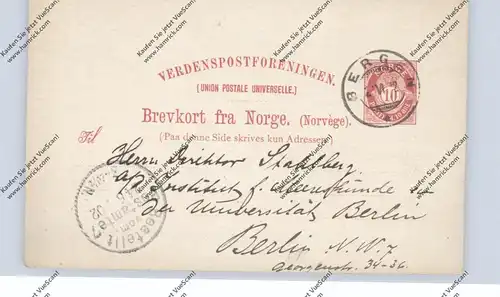 VERDENSPOSTFORENINGEN.
(UNION POSTALE UNIVERSELLE.)
Brevkort fra Norge. (Norvège).
(Paa denne Side skrives kun Adressen)
BERGEN
10
Til
Herrn Direktor Stahlberg
a/ Institut f. Meereskunde
der Universität Berlin
Berlin N.W.7
Georgenstr. 34-36.
Bestellt
Kaufen Sie jetzt VueScan!
www.hamrick.com